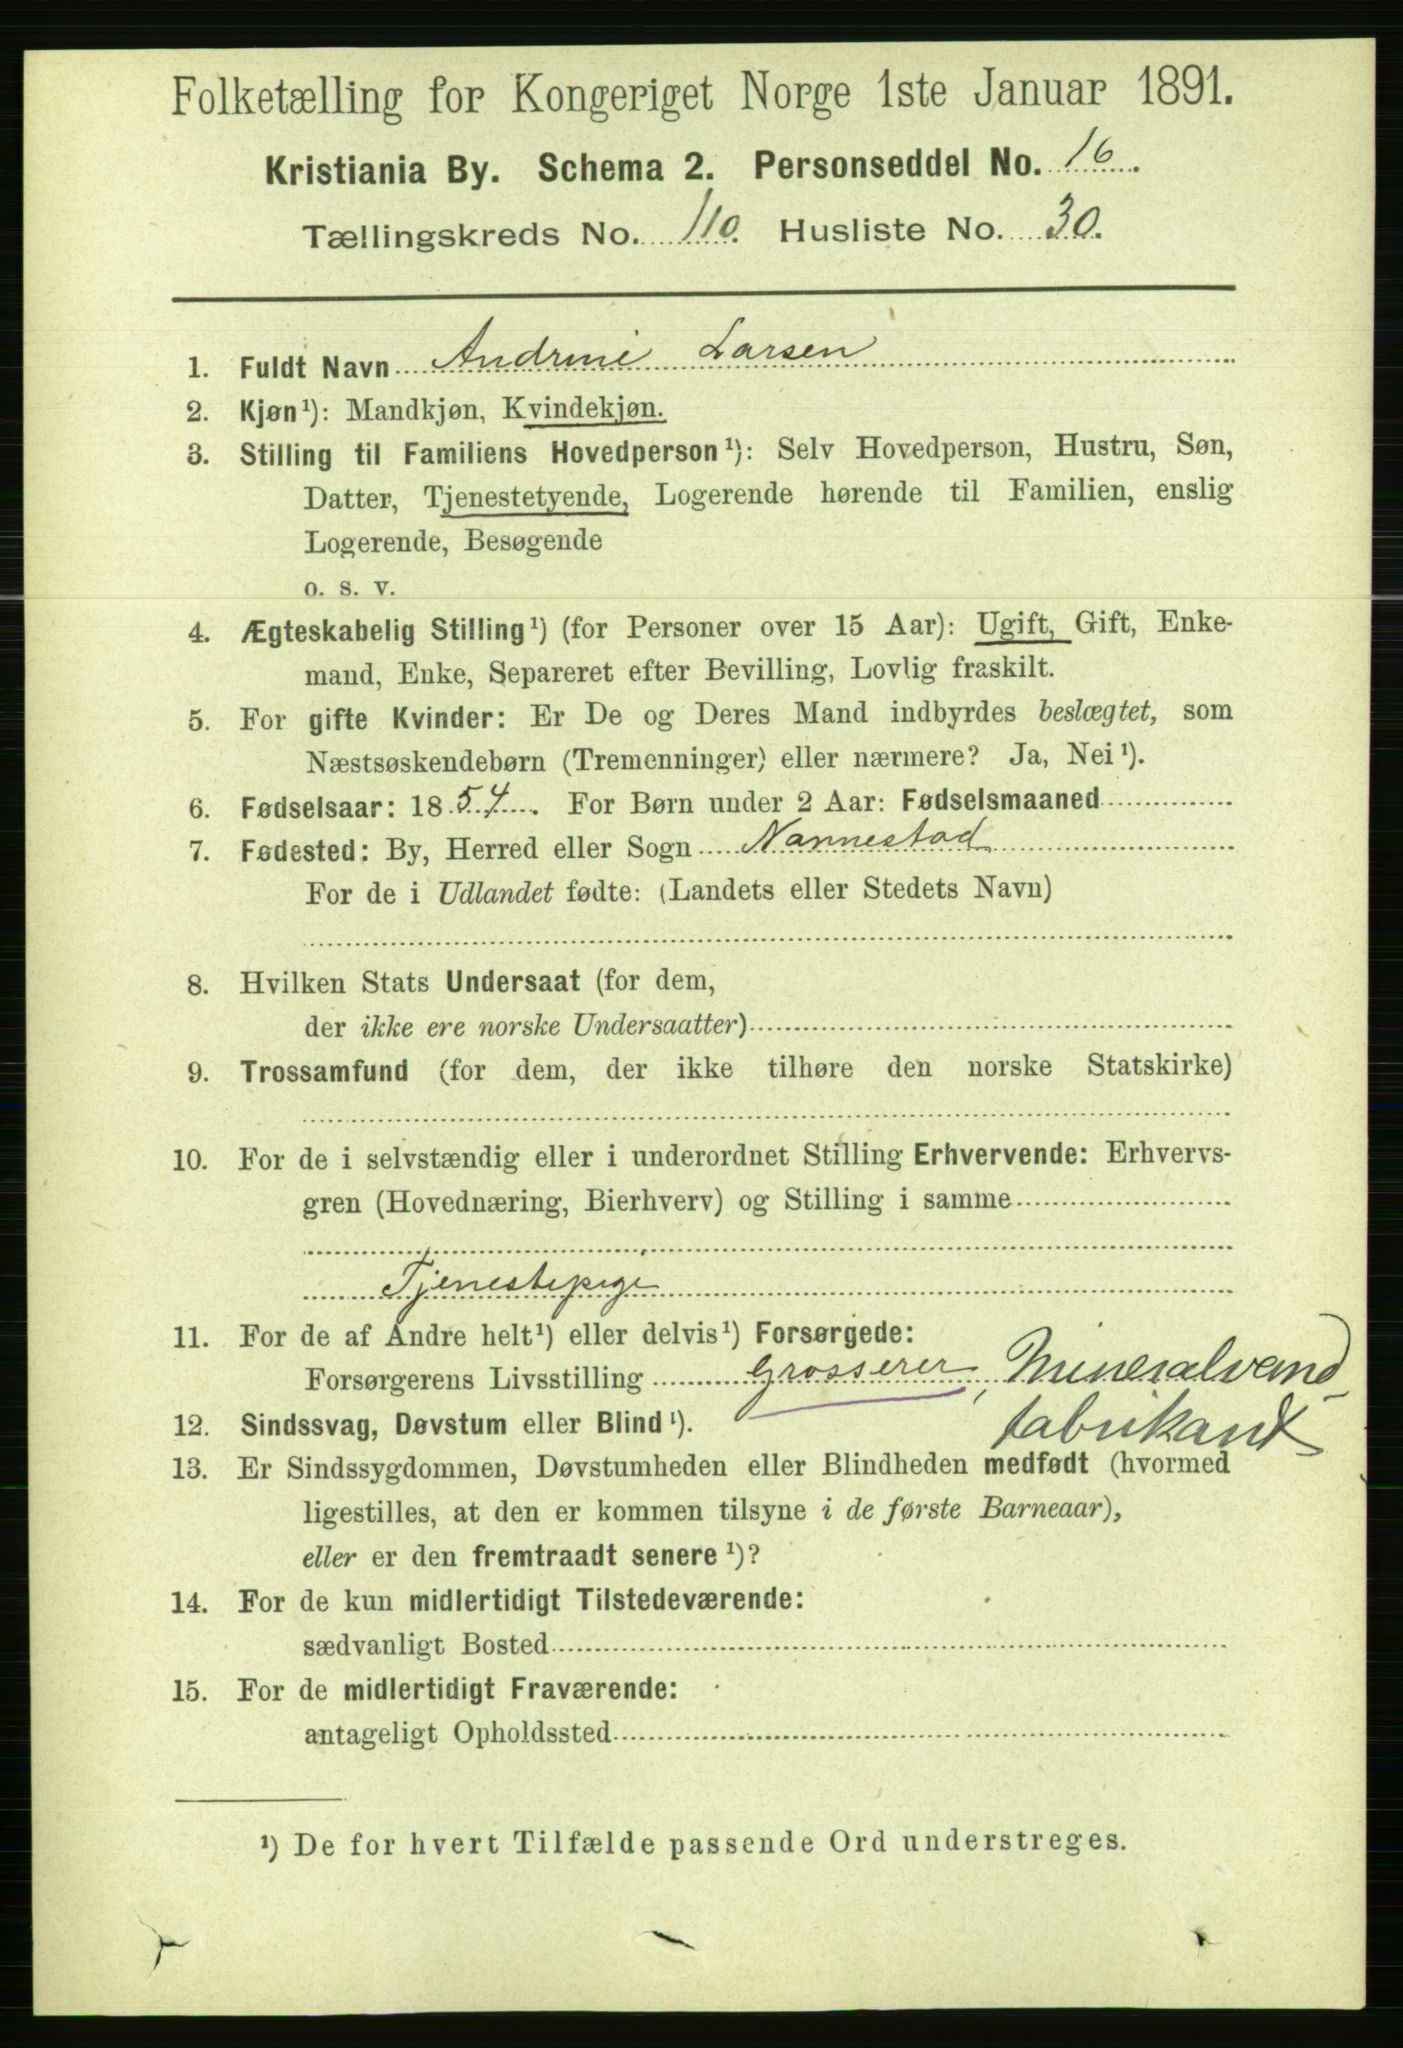 Folketælling for Kongeriget Norge 1ste Januar 1891.
Kristiania By. Schema 2. Personseddel No. 16.
Tællingskreds No. 110. Husliste No. 30.
1. Fuldt Navn Andrine Larsen
2. Kjøn¹): Mandkjøn, Kvindekjøn.
3. Stilling til Familiens Hovedperson¹): Selv Hovedperson, Hustru, Søn,
Datter, Tjenestetyende, Logerende hørende til Familien, enslig
Logerende, Besøgende
o. s. v.
4. Ægteskabelig Stilling¹) (for Personer over 15 Aar): Ugift, Gift, Enke-
mand, Enke, Separeret efter Bevilling, Lovlig fraskilt.
5. For gifte Kvinder: Er De og Deres Mand indbyrdes beslægtet, som
Næstsøskendebørn (Tremenninger) eller nærmere? Ja, Nei¹).
6. Fødselsaar: 1854. For Børn under 2 Aar: Fødselsmaaned
7. Fødested: By, Herred eller Sogn Nannestad
For de i Udlandet fødte: (Landets eller Stedets Navn)
8. Hvilken Stats Undersaat (for dem,
der ikke ere norske Undersaatter)
9. Trossamfund (for dem, der ikke tilhøre den norske Statskirke)
10. For de i selvstændig eller i underordnet Stilling Erhvervende: Erhvervs-
gren (Hovednæring, Bierhverv) og Stilling i samme
Tjenestepige
11. For de af Andre helt¹) eller delvis¹) Forsørgede:
Forsørgerens Livsstilling Grosserer, Mineralvand-
fabrikant
12. Sindssvag, Døvstum eller Blind¹).
13. Er Sindssygdommen, Døvstumheden eller Blindheden medfødt (hvormed
ligestilles, at den er kommen tilsyne i de første Barneaar),
eller er den fremtraadt senere¹)?
14. For de kun midlertidigt Tilstedeværende:
sædvanligt Bosted
15. For de midlertidigt Fraværende:
antageligt Opholdssted
¹) De for hvert Tilfælde passende Ord understreges.